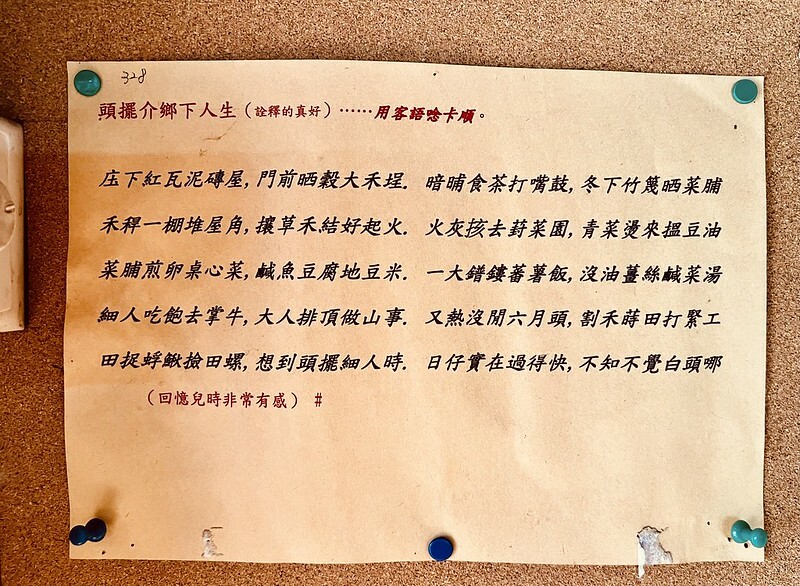 328
頭擺介鄉下人生（詮釋的真好）……用客語唸卡順。
庄下紅瓦泥磚屋，門前晒穀大禾埕．暗晡食茶打嘴鼓，冬下竹篾晒菜脯
禾稈一棚堆屋角，攘草禾結好起火．火灰㧡去葑菜園，青菜燙來搵豆油
菜脯煎卵桌心菜，鹹魚豆腐地豆米．一大鐠鏤蕃薯飯，沒油薑絲鹹菜湯
細人吃飽去掌牛，大人排頂做山事．又熱沒閒六月頭，割禾蒔田打緊工
田捉蜉鰍撿田螺，想到頭擺細人時．日仔實在過得快，不知不覺白頭哪
（回憶兒時非常有感） #